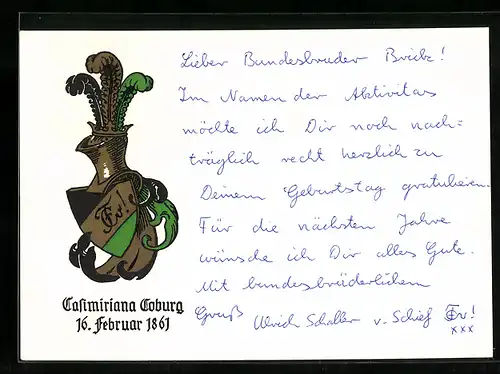 Lieber Bundesbruder
Im Namen der Aktivitas
möchte ich Dir noch nach=
träglich recht herzlich zu
Deinem Geburtstag gratulieren.
Für die nächsten Jahre
wünsche ich Dir alles Gute.
Mit bundesbrüderlichem
Gruß Ulrich Schaller v. Schief
xxx
Casimiriana Coburg
16. Februar 1861